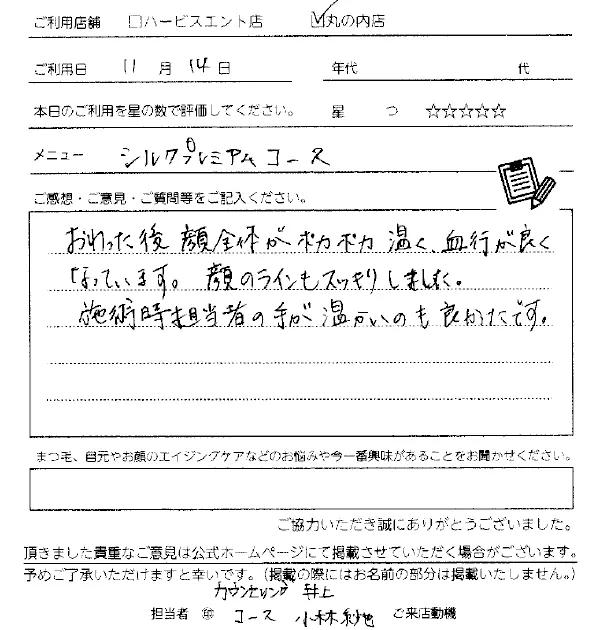 ご利用店舗 □ハービスエント店 ☑丸の内店
ご利用日 11 月 14 日 年代 代
本日のご利用を星の数で評価してください。 星 つ ☆☆☆☆☆
メニュー シルクプレミアムコース
ご感想・ご意見・ご質問等をご記入ください。
おわった後 顔全体が ポカポカ 温く、血行が良く
なっています。 顔のラインもスッキリしました。
施術時担当者の手が温かいのも良かたです。
まつ毛、目元やお顔のエイジングケアなどのお悩みや今一番興味があることをお聞かせください。
ご協力いただき誠にありがとうございました。
頂きました貴重なご意見は公式ホームページにて掲載させていただく場合がございます。
予めご了承いただけますと幸いです。(掲載の際にはお名前の部分は掲載いたしません。)
カウンセリング 井上
担当者 ㊞ コース 小林 ご来店動機